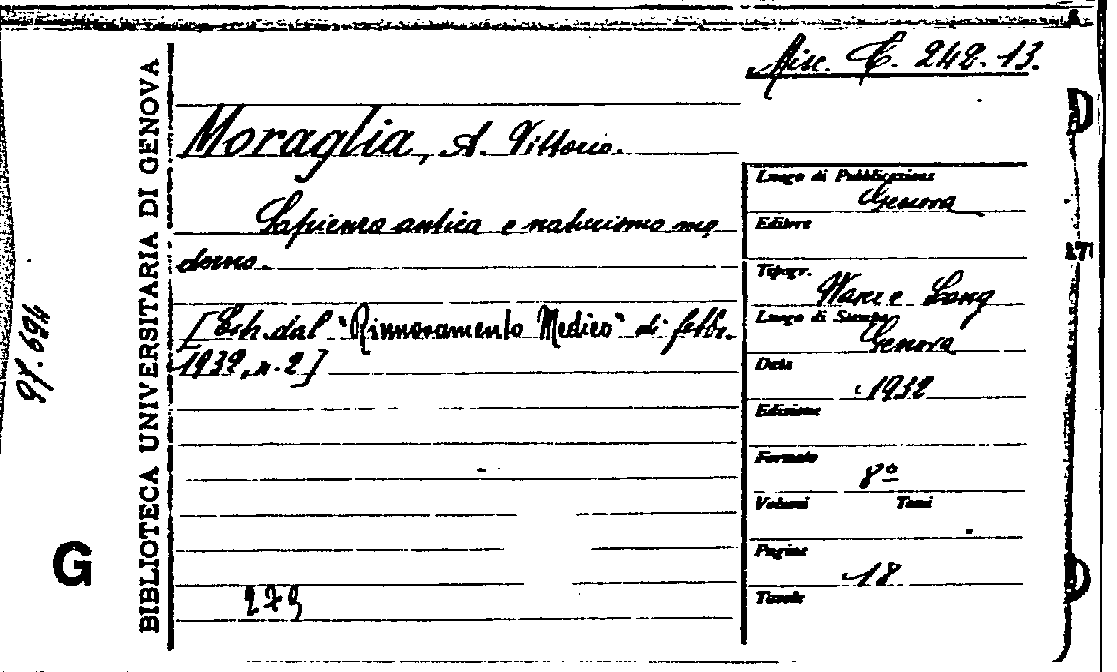 Misc. C. 242. 13.
BIBLIOTECA UNIVERSITARIA DI GENOVA
Moraglia, A. Vittorio.
Sapienza antica e naturismo mo
derno.
[Estr. dal "Rinnovamento Medico" di febbr.
1932, n. 2]
97.694
G
279
Luogo di Pubblicazione
Genova
Editore
Tipogr.
Luogo di Stampa
Genova
Data
1932
Edizione
Formato
8º
Volumi Tomi
Pagine
18
Tavole